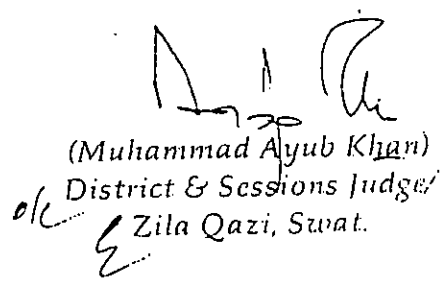 (Muhammad Ayub Khan)
District & Sessions Judge/
o/c Zila Qazi, Swat.